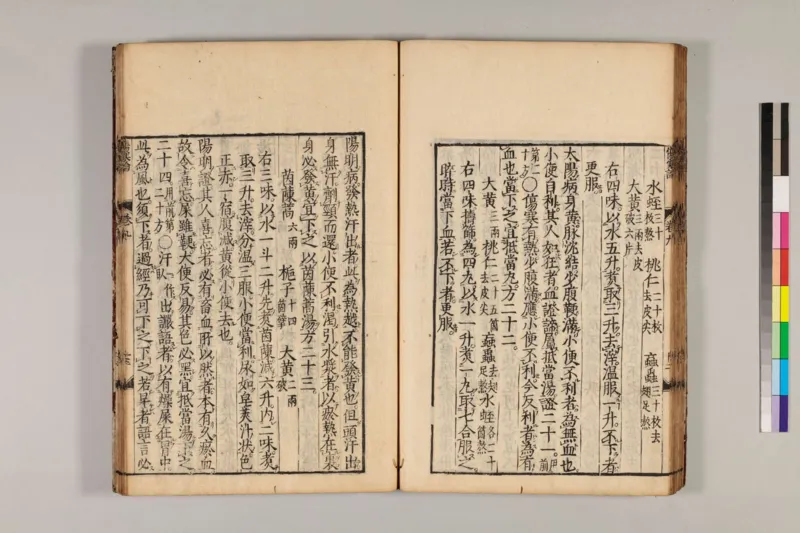 水蛭三十枚熬 桃仁二十枚去皮尖 䖟蟲三十枚去翅足熬
大黃三兩去皮破六片
右四味以水五升煮取三升去滓溫服一升不下者
更服
太陽病身黃脉沈結少腹鞕滿小便不利者為無血也
小便自利其人如狂者血證諦屬抵當湯證二十一用前
第二十方〇傷寒有熱少腹滿應小便不利今反利者為有
血也當下之宜抵當丸方二十二
大黃三兩 桃仁二十五箇去皮尖 䖟蟲去翅足熬 水蛭各二十箇熬
右四味擣篩為四丸以水一升煮一丸取七合服之
晬時當下血若不下者更服
陽明病發熱汗出者此為熱越不能發黃也但頭汗出
身無汗劑頸而還小便不利渴引水漿者以瘀熱在裏
身必發黃宜下之以茵蔯蒿湯方二十三
茵蔯蒿六兩 梔子十四箇擘 大黃二兩破
右三味以水一斗二升先煮茵蔯減六升內二味煮
取三升去滓分溫三服小便當利尿如皂莢汁狀色
正赤一宿腹減黃從小便去也
陽明證其人喜忘者必有畜血所以然者本有久瘀血
故令喜忘屎雖鞕大便反易其色必黑宜抵當湯下之
二十四用前第二十方〇汗一作臥出讝語者以有燥屎在胃中
此為風也須下者過經乃可下之下之若早者語言必